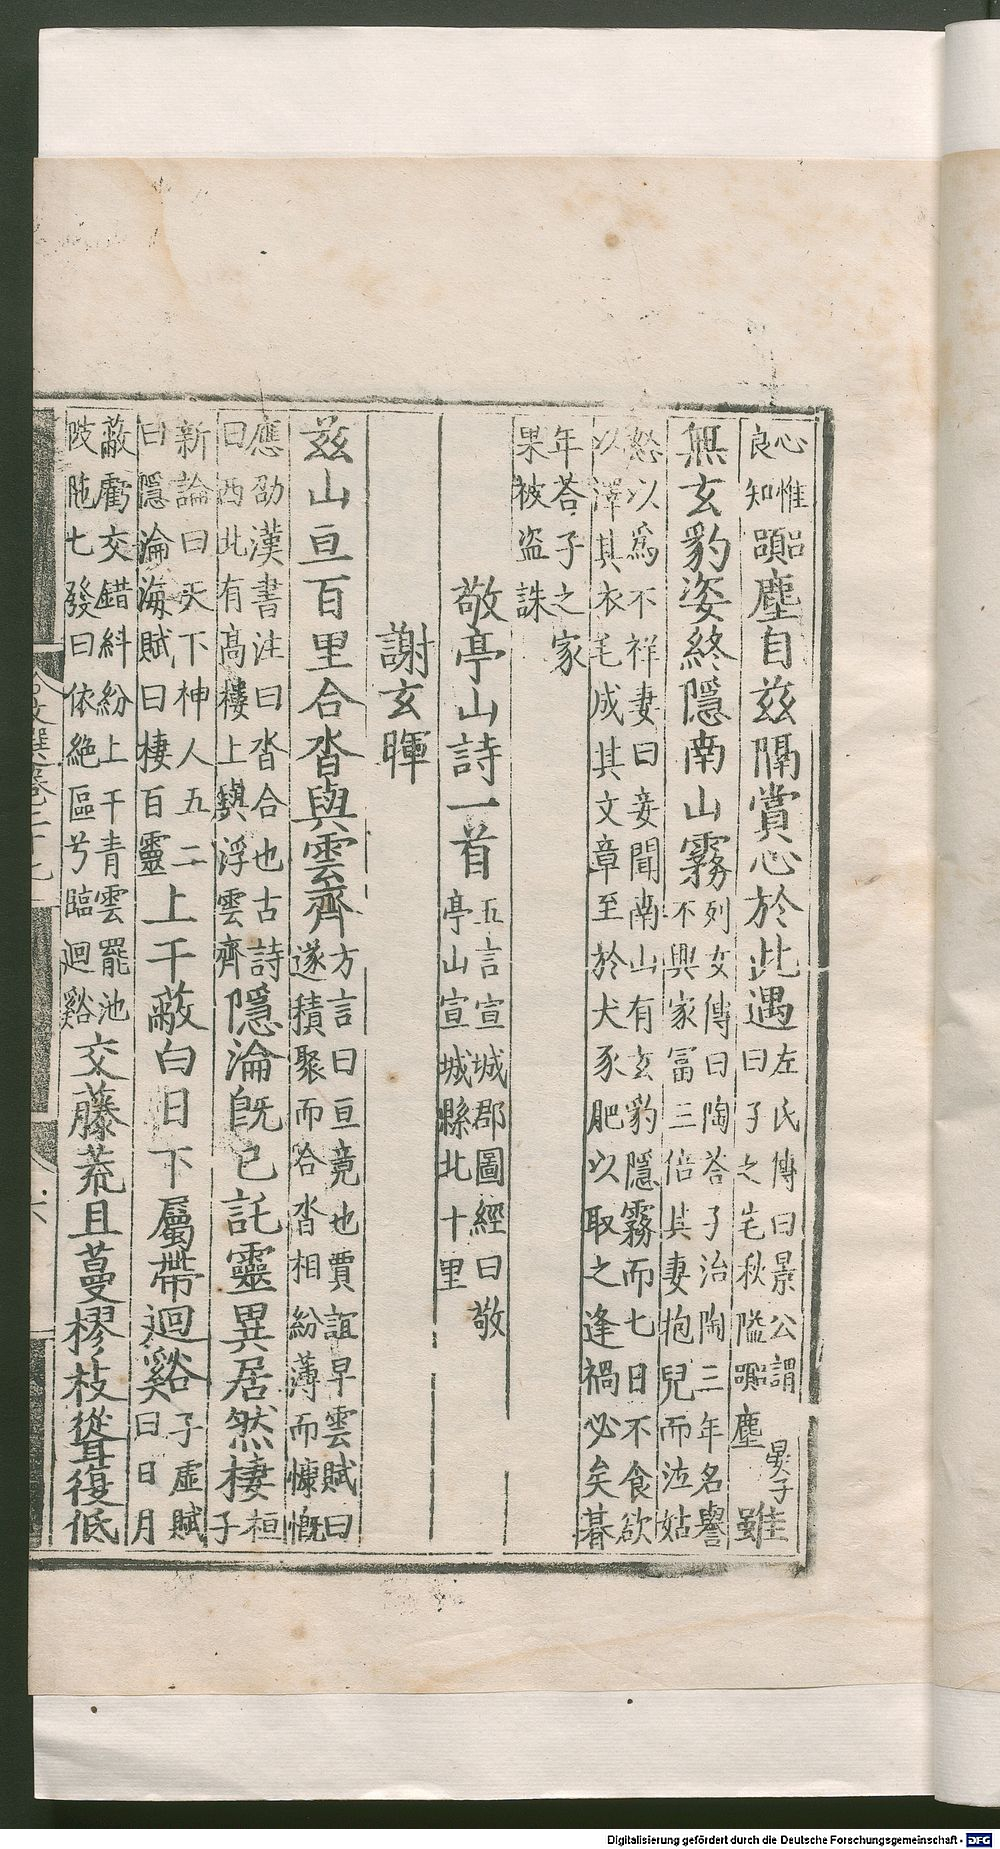 心惟良知嚻塵自兹隔賞心於此遇左氏傳曰景公謂晏子曰子之宅秋隘嚻塵雖
無玄豹姿終隱南山霧列女傳曰陶荅子治陶三年名譽不興家冨三倍其妻抱兒而泣姑
怒以爲不祥妻曰妾聞南山有玄豹隱霧而七日不食欲以澤其衣毛成其文章至於犬豕肥以取之逢禍必矣朞
年荅子之家果被盗誅
敬亭山詩一首五言宣城郡圖經曰敬亭山宣城縣北十里
謝玄暉
兹山亘百里合沓與雲齊方言曰亘竟也賈誼旱雲賦曰遂積聚而合沓相紛薄而慷慨
應劭漢書注曰沓合也古詩曰西北有髙樓上與浮雲齊隱淪旣已託靈異居然棲桓子
新論曰天下神人五二曰隱淪海賦曰棲百靈上干蔽白日下屬帶迴谿子虛賦曰日月
蔽虧交錯糾紛上干青雲罷池陂陁七發曰依絶區兮臨迴谿交藤荒且蔓樛枝聳復低
文選卷二十七
六
Digitalisierung gefördert durch die Deutsche Forschungsgemeinschaft - DFG